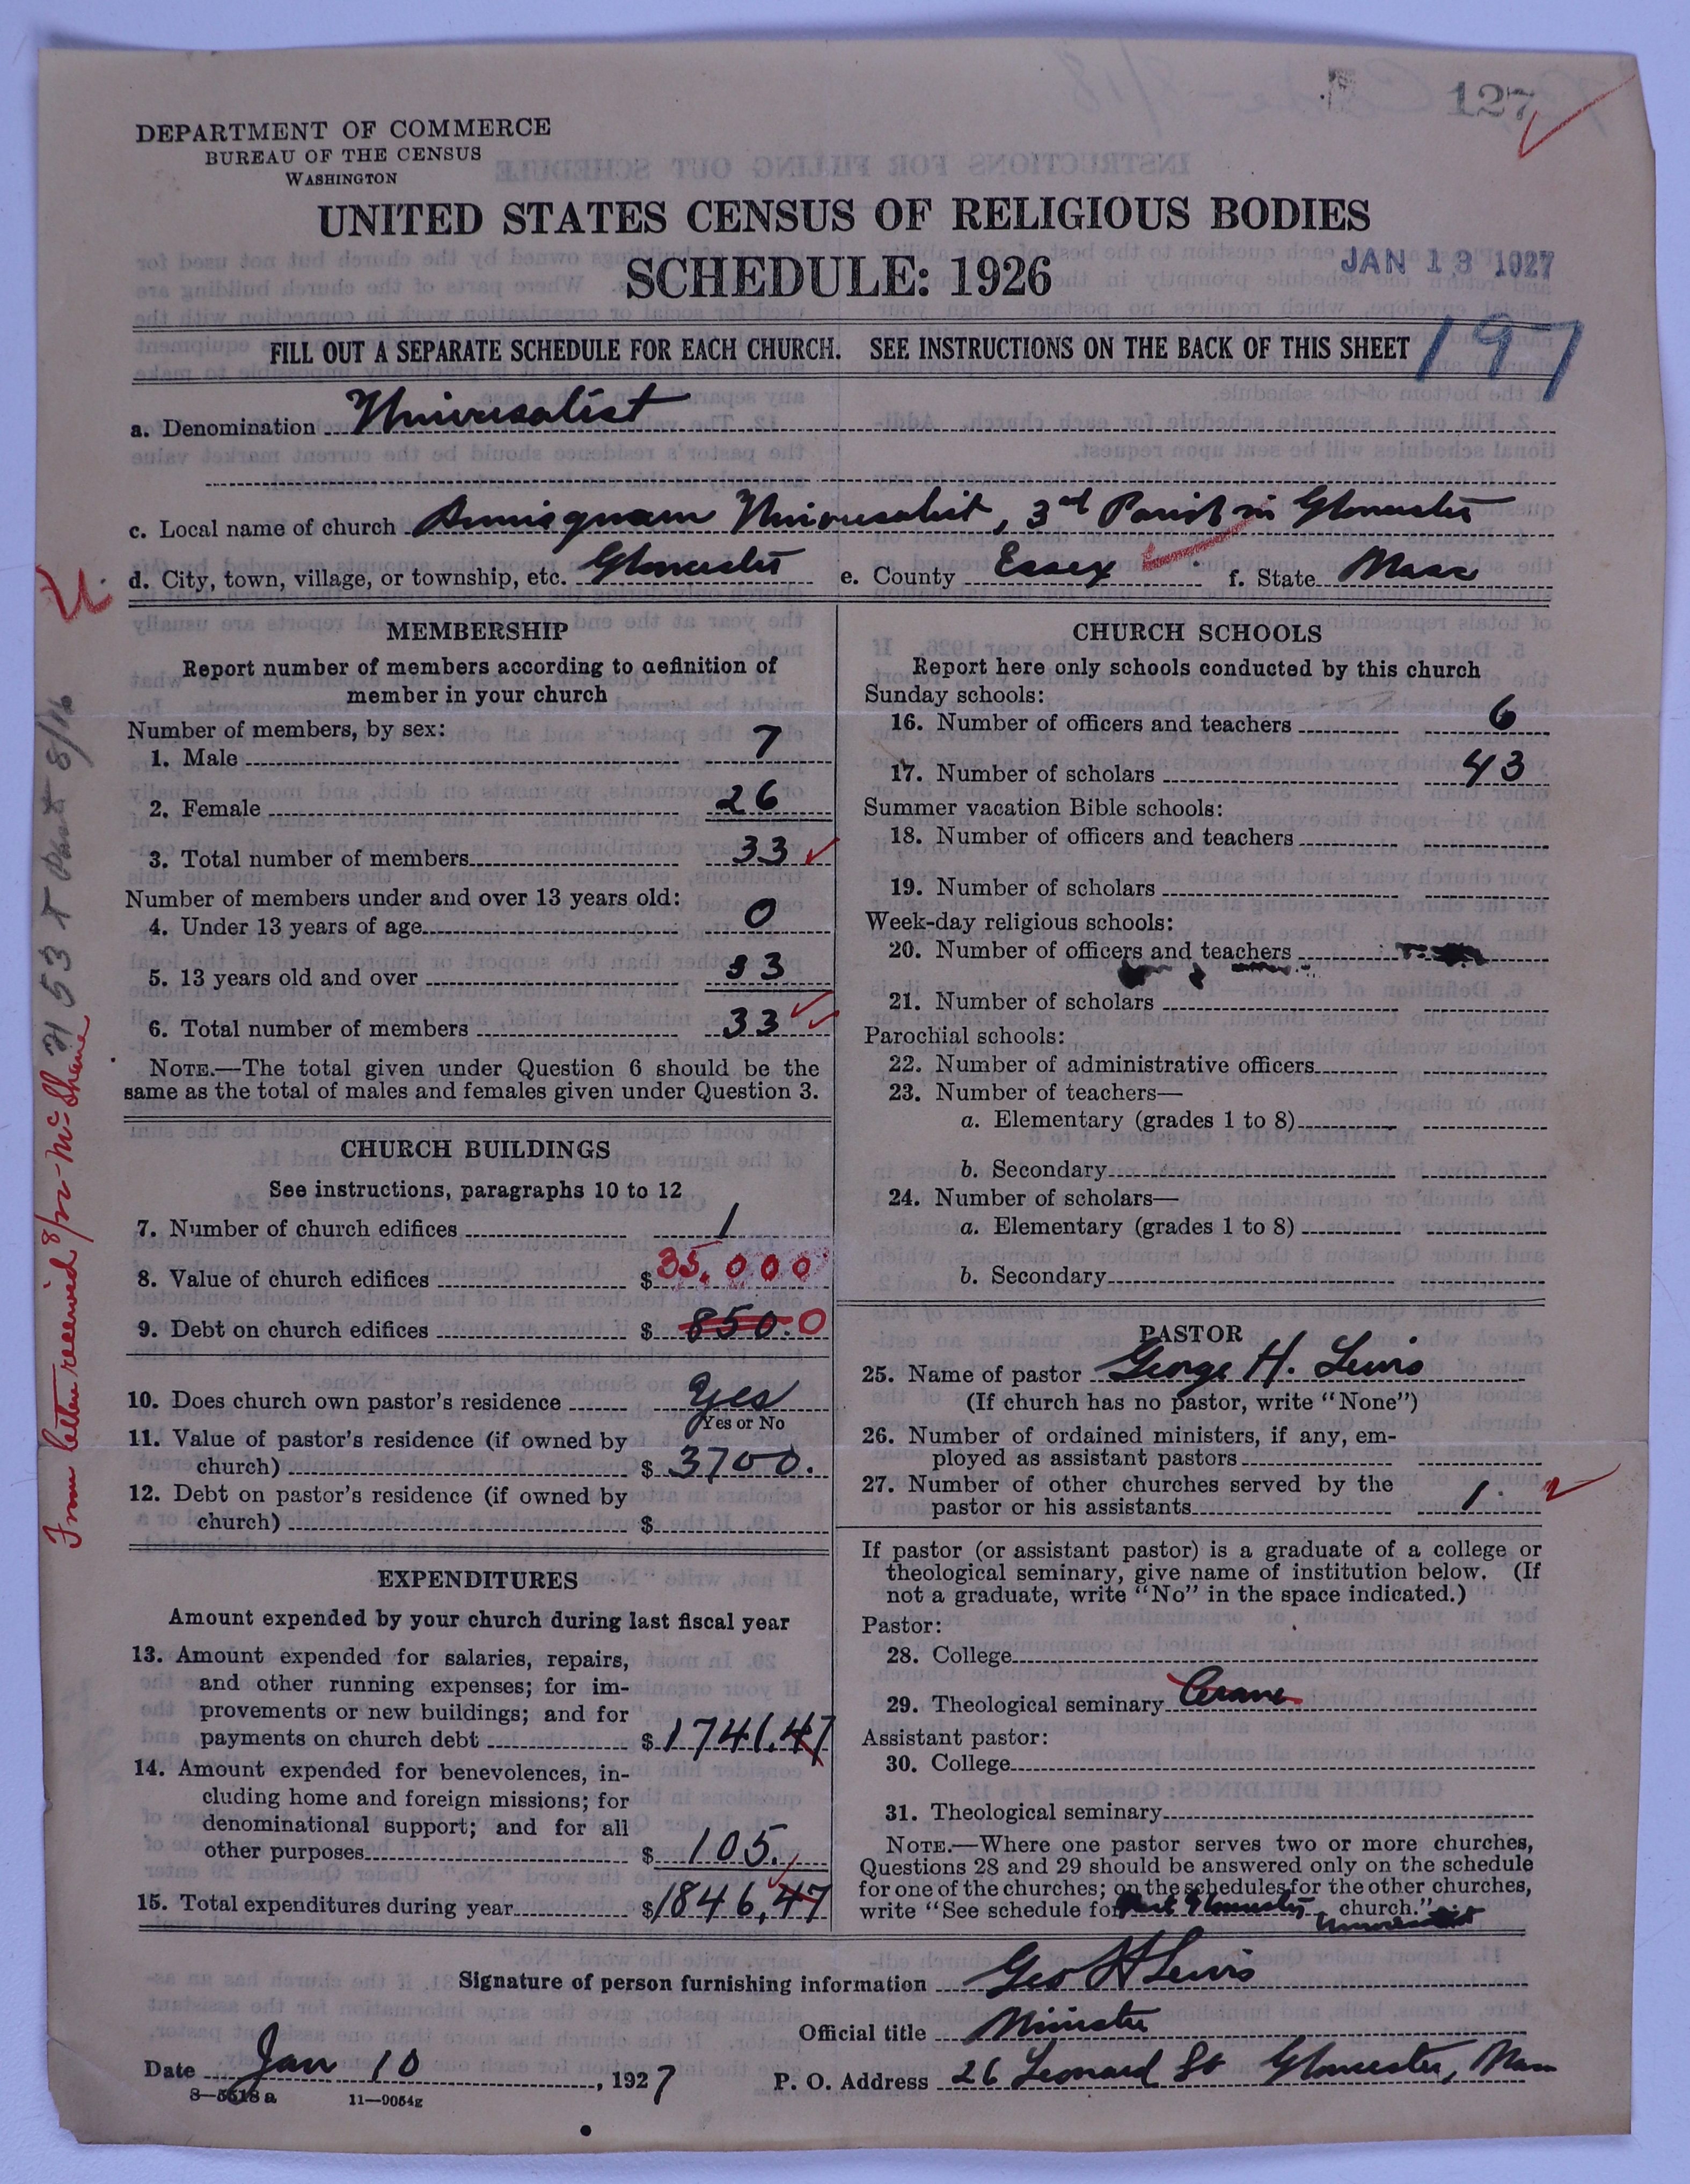 127
DEPARTMENT OF COMMERCE
BUREAU OF THE CENSUS
WASHINGTON
UNITED STATES CENSUS OF RELIGIOUS BODIES
SCHEDULE: 1926
JAN 13 1927
FILL OUT A SEPARATE SCHEDULE FOR EACH CHURCH. SEE INSTRUCTIONS ON THE BACK OF THIS SHEET
197
a. Denomination Universalist
c. Local name of church Annisquam Universalist, 3rd Parish in Gloucester
d. City, town, village, or township, etc. Gloucester e. County Essex f. State Mass
MEMBERSHIP
Report number of members according to definition of
member in your church
Number of members, by sex:
1. Male 7
2. Female 26
3. Total number of members 33
Number of members under and over 13 years old:
4. Under 13 years of age 0
5. 13 years old and over 33
6. Total number of members 33
NOTE.—The total given under Question 6 should be the
same as the total of males and females given under Question 3.
CHURCH BUILDINGS
See instructions, paragraphs 10 to 12
7. Number of church edifices 1
8. Value of church edifices $ 35,000
9. Debt on church edifices $ 850.0
10. Does church own pastor's residence Yes
Yes or No
11. Value of pastor's residence (if owned by
church) $ 3700.
12. Debt on pastor's residence (if owned by
church) $
EXPENDITURES
Amount expended by your church during last fiscal year
13. Amount expended for salaries, repairs,
and other running expenses; for im-
provements or new buildings; and for
payments on church debt $ 1741.47
14. Amount expended for benevolences, in-
cluding home and foreign missions; for
denominational support; and for all
other purposes $ 105.
15. Total expenditures during year $ 1846,47
CHURCH SCHOOLS
Report here only schools conducted by this church
Sunday schools:
16. Number of officers and teachers 6
17. Number of scholars 43
Summer vacation Bible schools:
18. Number of officers and teachers
19. Number of scholars
Week-day religious schools:
20. Number of officers and teachers
21. Number of scholars
Parochial schools:
22. Number of administrative officers
23. Number of teachers—
a. Elementary (grades 1 to 8)
b. Secondary
24. Number of scholars—
a. Elementary (grades 1 to 8)
b. Secondary
PASTOR
25. Name of pastor George H. Lewis
(If church has no pastor, write "None")
26. Number of ordained ministers, if any, em-
ployed as assistant pastors
27. Number of other churches served by the
pastor or his assistants 1.
If pastor (or assistant pastor) is a graduate of a college or
theological seminary, give name of institution below. (If
not a graduate, write "No" in the space indicated.)
Pastor:
28. College
29. Theological seminary Crane
Assistant pastor:
30. College
31. Theological seminary
NOTE.—Where one pastor serves two or more churches,
Questions 28 and 29 should be answered only on the schedule
for one of the churches; on the schedules for the other churches,
write "See schedule for Gloucester church."
Signature of person furnishing information Geo H Lewis
Official title Minister
Date Jan 10, 1927 P. O. Address 26 Leonard St Gloucester, Mass
8—5518a 11—9054g
From letter received 8/12-McShane